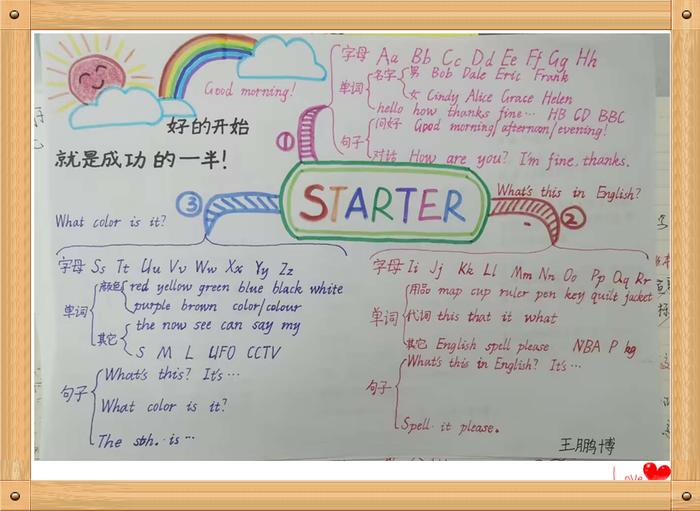 Good morning!
好的开始
就是成功的一半!
STARTER
①
字母 Aa Bb Cc Dd Ee Ff Gg Hh
单词
名字
男 Bob Dale Eric Frank
女 Cindy Alice Grace Helen
hello how thanks fine… HB CD BBC
句子
问好 Good morning/afternoon/evening!
对话 How are you? I'm fine, thanks.
②
What's this in English?
字母 Ii Jj Kk Ll Mm Nn Oo Pp Qq Rr
单词
用品 map cup ruler pen key quilt jacket
代词 this that it what
其它 English spell please NBA P kg
句子
What's this in English? It's…
Spell it please.
③
What color is it?
字母 Ss Tt Uu Vv Ww Xx Yy Zz
单词
颜色 red yellow green blue black white
purple brown color/colour
其它 the now see can say my
S M L UFO CCTV
句子
What's this? It's…
What color is it?
The sth. is…
王鹏博
Love